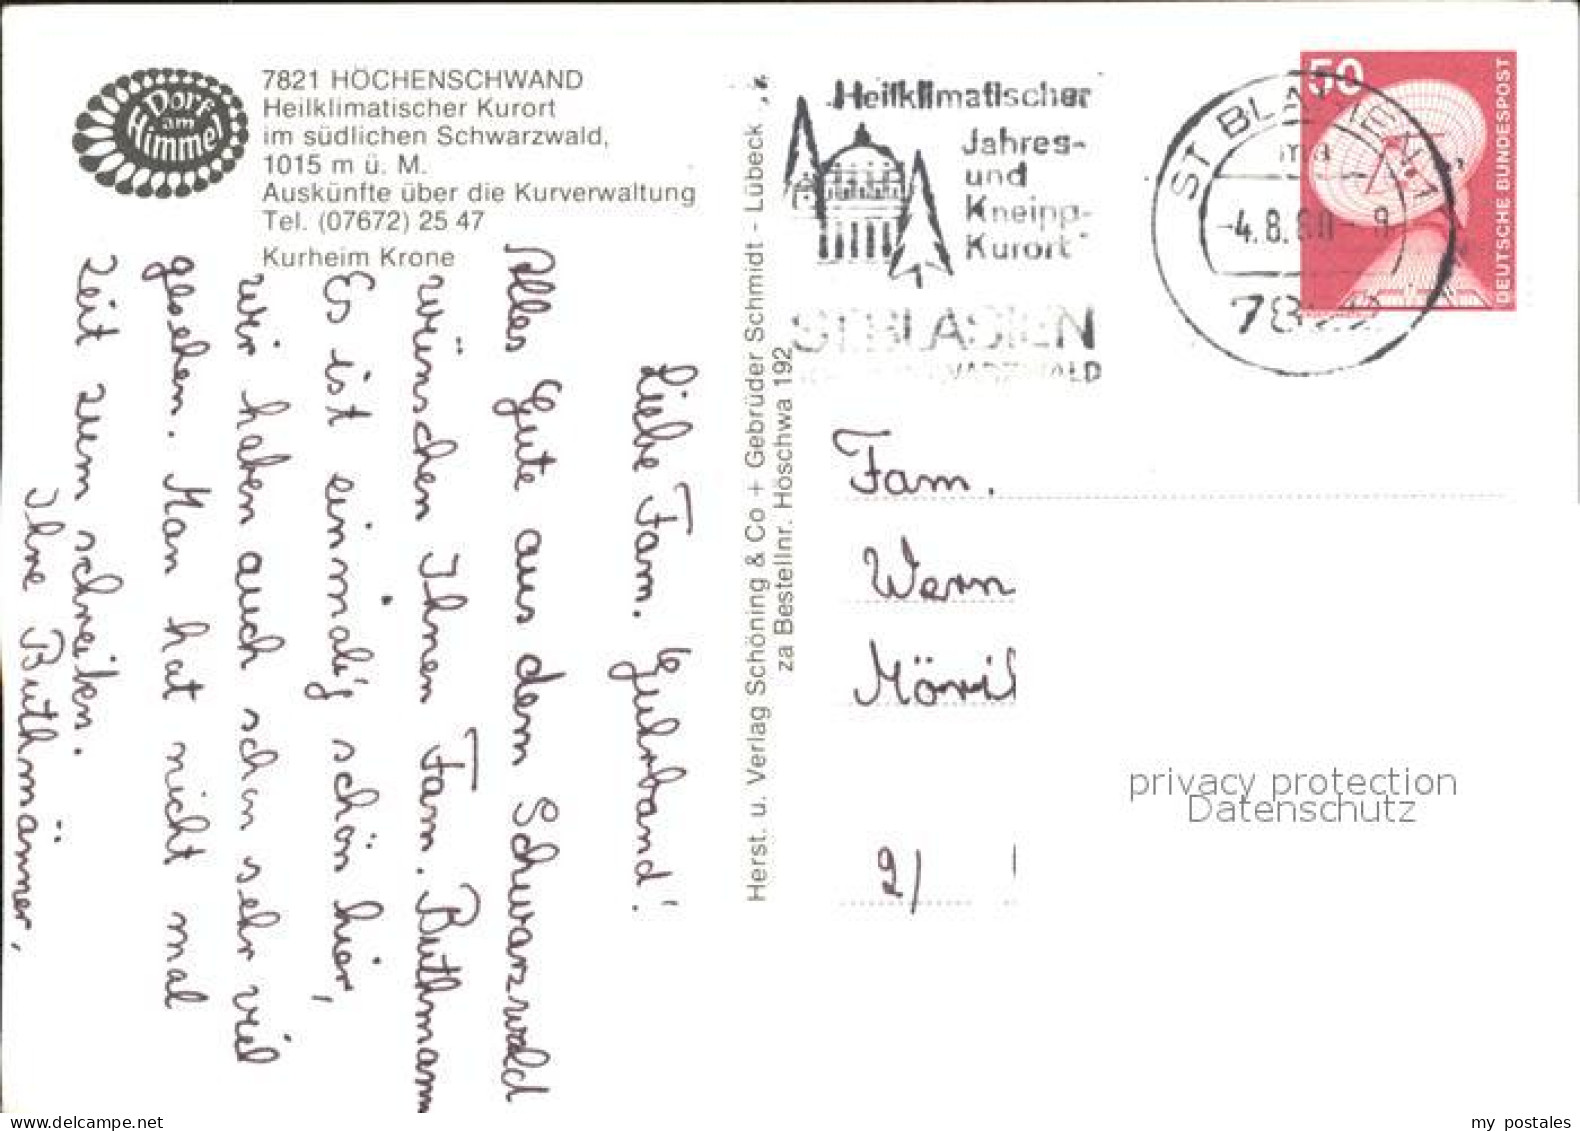 Dorf
am
Himmel
7821 HÖCHENSCHWAND
Heilklimatischer Kurort
im südlichen Schwarzwald,
1015 m ü. M.
Auskünfte über die Kurverwaltung
Tel. (07672) 25 47
Kurheim Krone
Liebe Fam. Guhrband!
Alles Gute aus dem Schwarzwald
wünschen Ihnen Fam. Buthmann
Es ist einmalig schön hier,
wir haben auch schon sehr viel
gesehen. Man hat nicht mal
Zeit zum schreiben.
Ihre Buthmänner,
Herst. u. Verlag Schöning & Co + Gebrüder Schmidt - Lübeck
za Bestellnr. Höschwa 192
Heilklimatischer
Jahres-
und
Kneipp-
Kurort
ST. BLASIEN
50
DEUTSCHE BUNDESPOST
Fam.
Wern
Möri
2/
privacy protection
Datenschutz
www.delcampe.net
my postales